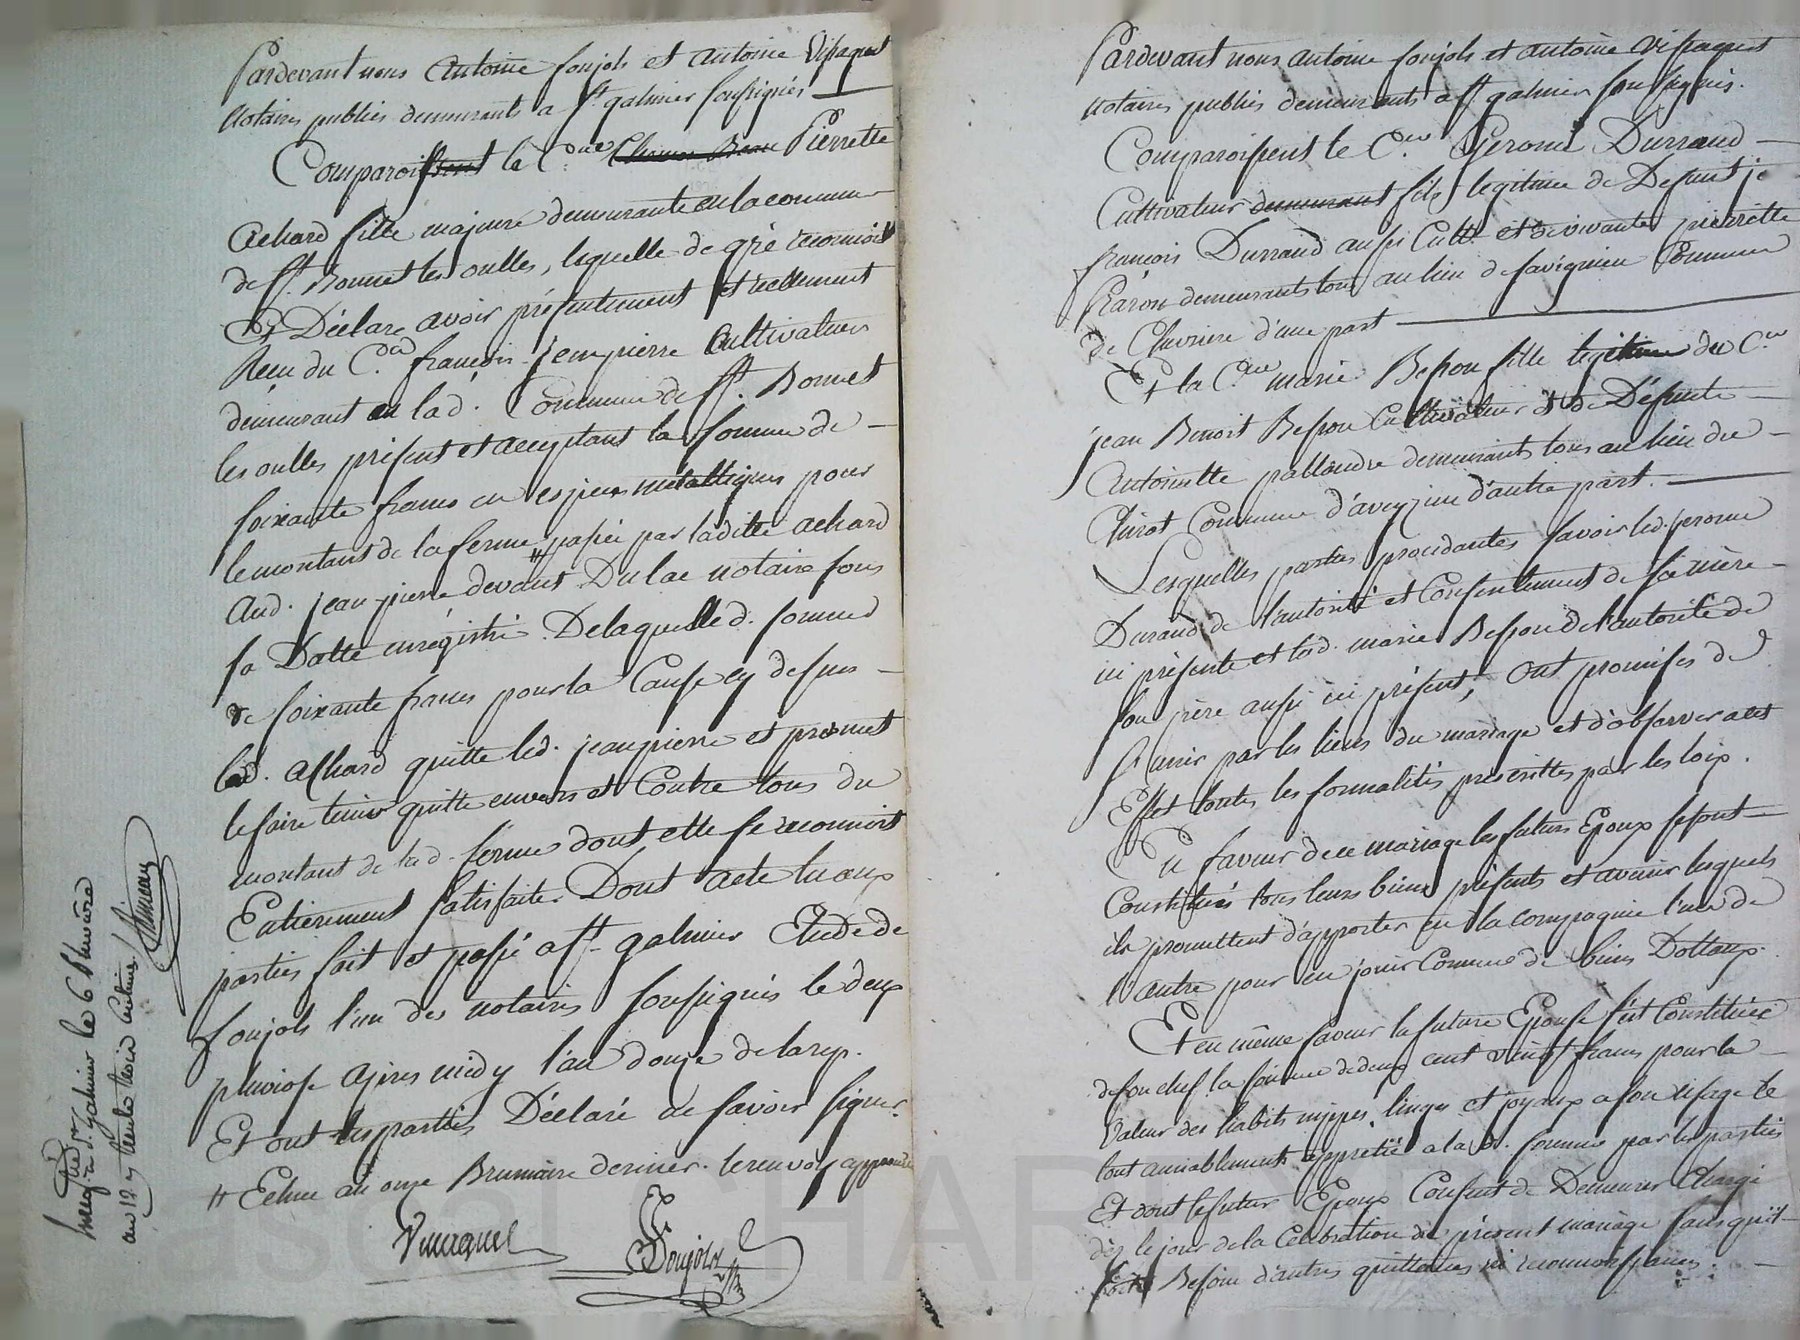 Pardevant nous Antoine foujols et antoine Vissaguet
Notaires publics demeurants a St galmier soussignés
Comparoissent la C.ne Pierrette
Achard fille majeure demeurante en la commune
de St. Bonnet les oulles, laquelle de gré reconnoit
Et Déclare avoir présentement et réellement
Reçu du C.en françois jeanpierre Cultivateur
demeurant en lad. Commune de St. Bonnet
les oulles présent et acceptant la somme de
soixante francs en espèces métalliques pour
le montant de la ferme # passée par laditte achard
aud. jeanpierre devant Dulac notaire sous
sa Datte enregistré. De laquelle d. somme
de soixante francs pour la Cause cy dessus
lad. achard quitte led. jeanpierre et promet
le faire tenir quitte envers et Contre tous du
montant de lad. ferme dont elle se reconnoit
Entierement satisfaite. Dont acte lu aux
parties fait et passé a St. galmier Etude de
foujols l'un des notaires soussignés le deux
pluviose apres midy l'an douze de la rep.
Et ont les parties Déclaré ne savoir signer.
# Echue au onze Brumaire dernier. le renvoy approuvé
foujols
Enreg.ré à St. galmier le 6 Pluviôse
an 12
Pardevant nous antoine foujols et antoine Vissaguet
notaires publics demeurants a St galmier soussignés.
Comparoissent le C.en Gerome Durrand
Cultivateur demeurant fils legitime de Defunt je
françois Durrand aussi Cultr. et de vivante pierrette
demeurants tous au lieu de savignieu Commune
de Chevriere d'une part
Et la C.ne marie Besson fille legitime du C.en
jean Benoit Besson Cultivateur et de Défunte
Antoinette pallandre demeurants tous au lieu du
Commune d'aveyzieu d'autre part.
Lesquelles parties procedantes savoir led. jerome
Durand de l'autorité et Consentement de sa mère
ici présente et lad. marie Besson de l'autorité de
son père aussi ici présent, ont promises de
s'unir par les liens du mariage et d'observer a cet
Effet toutes les formalités prescrittes par les loix.
En faveur de ce mariage les futurs Epoux se sont
Constitués tous leurs biens présents et avenir lesquels
ils promettent d'apporter en la compagnie l'un de
l'autre pour en jouir Comme de biens Dottaux.
Et en même faveur la future Epouse s'est Constituée
de son chef la somme de deux cent vingt francs pour la
valeur des habits nippes, linges et joyaux a son usage le
tout amiablement apprétié a lad. somme par les parties
Et dont le futur Epoux Consent de Demeurer Chargé
dès le jour de la Célébration du présent mariage sans qu'il
soit Besoin d'autres quittances ni reconnoissances.